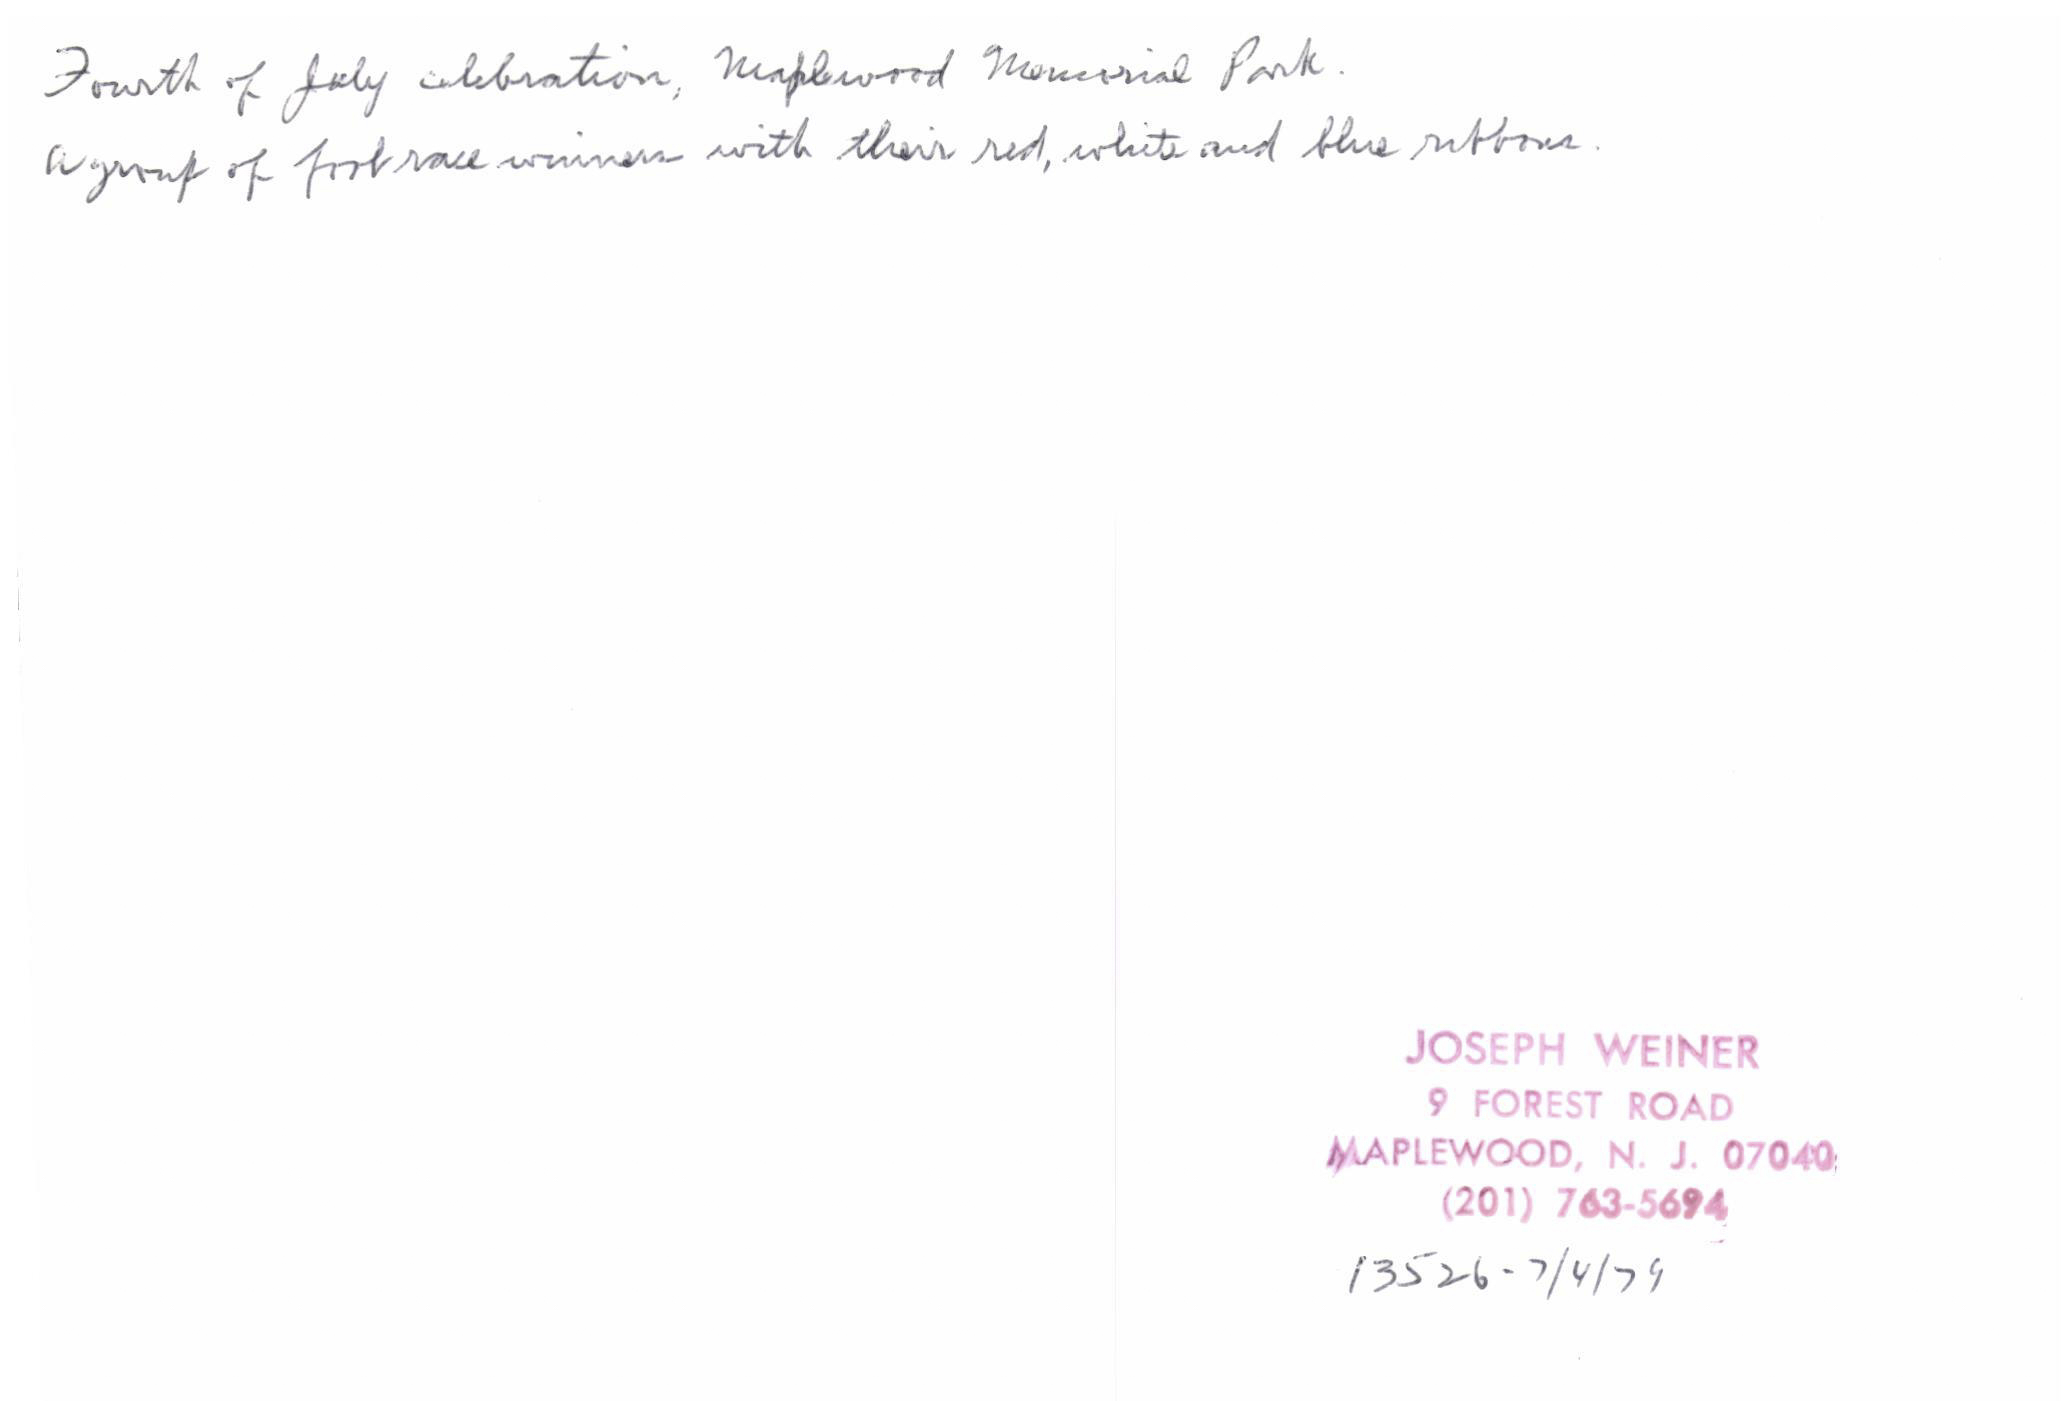 Fourth of July celebration, Maplewood Memorial Park.
A group of foot race winners with their red, white and blue ribbons.
JOSEPH WEINER
9 FOREST ROAD
MAPLEWOOD, N. J. 07040
(201) 763-5694
13526-7/4/79